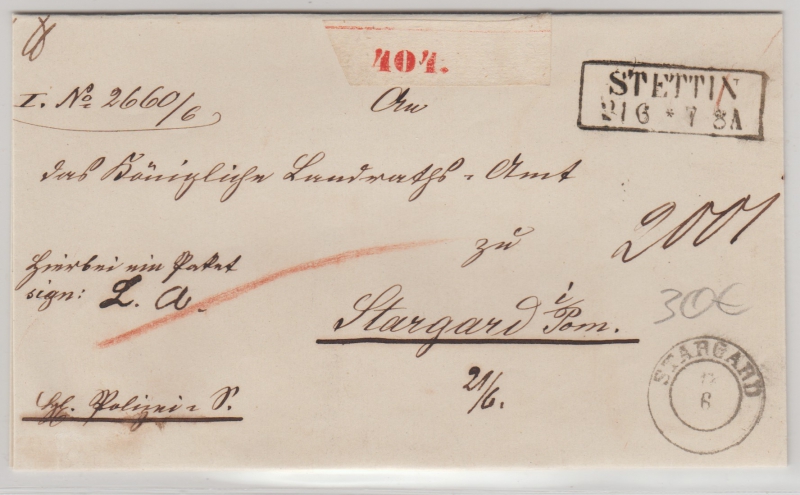 404.
STETTIN
21 6 * 7 8A
I. No 2660/6
An
das Königliche Landraths-Amt
zu
2001
Hierbei ein Paket
sign: L. A.
Stargard i/Pom.
30€
STARGARD
6
21/6.
Polizei-S.